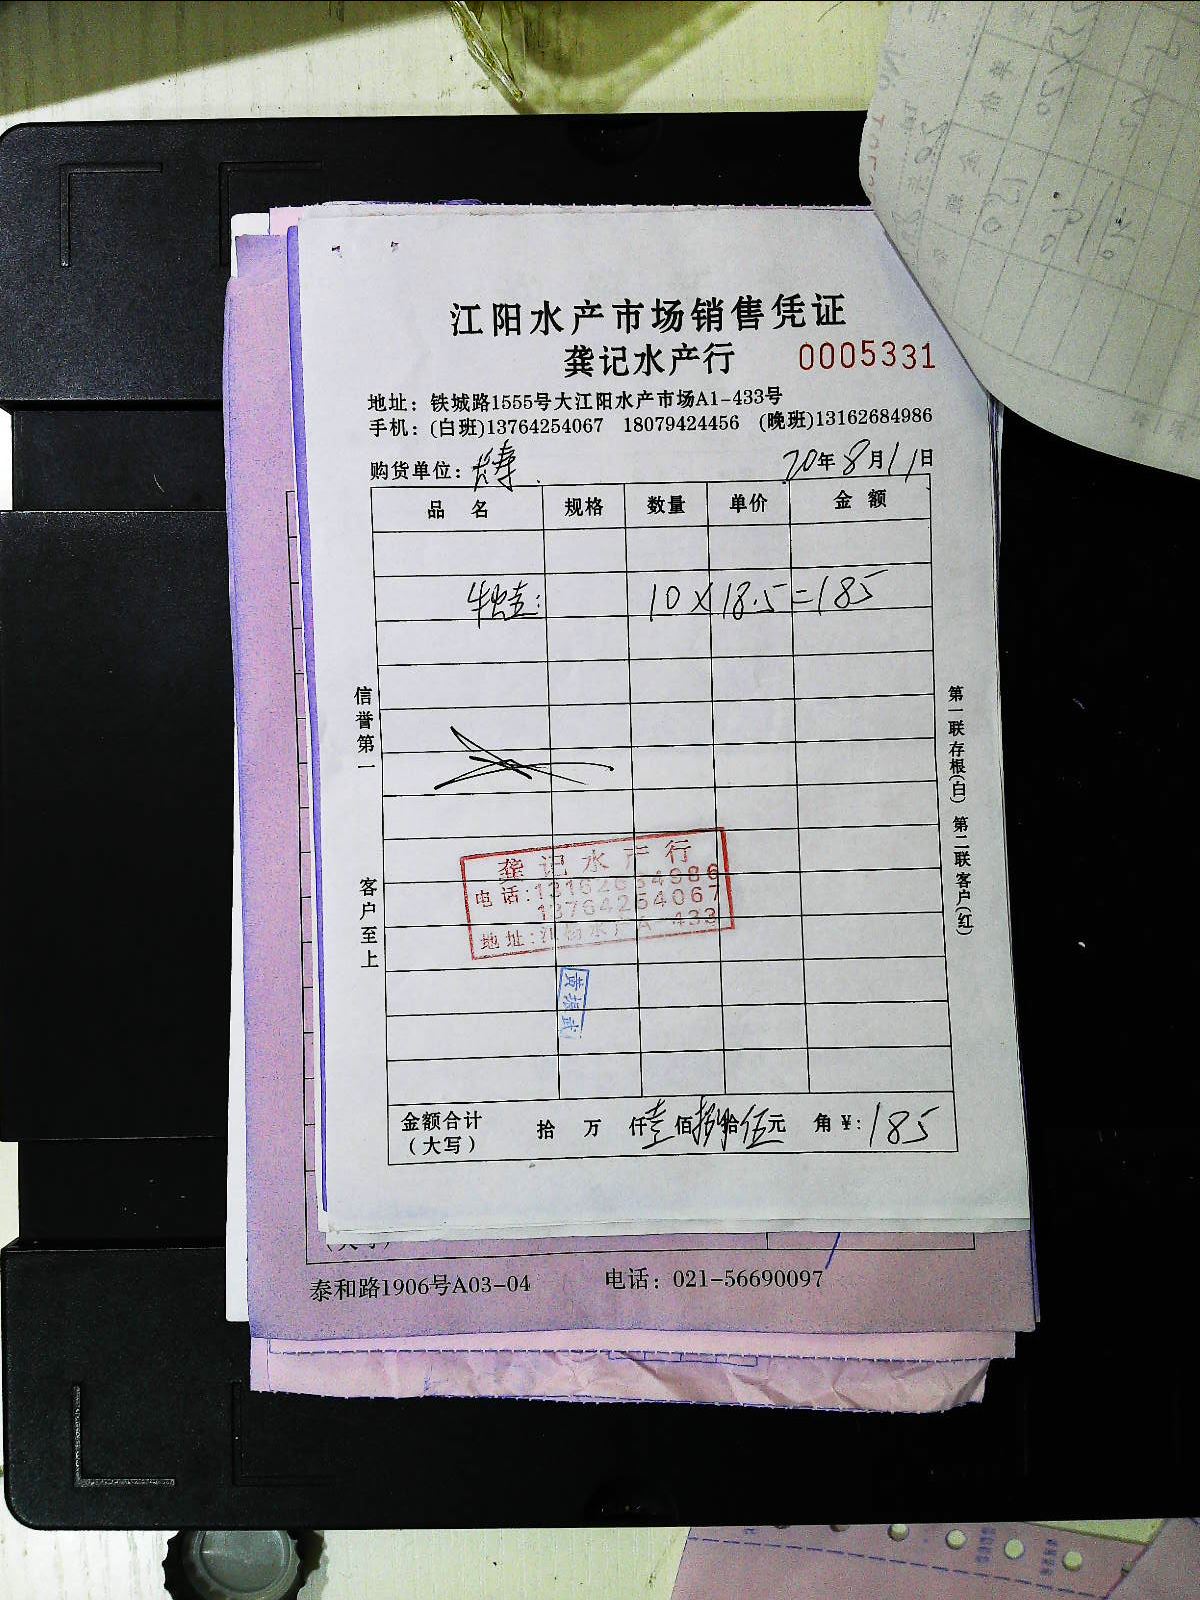 江阳水产市场销售凭证
龚记水产行 0005331
地址：铁城路1555号大江阳水产市场A1-433号
手机：(白班)13764254067 18079424456 (晚班)13162684986
购货单位：长寿 20年8月11日
品 名 规格 数量 单价 金 额
牛蛙: 10×18.5=185
信誉第一
客户至上
第一联存根(白) 第二联客户(红)
龚记水产行
电话:13162684986
13764254067
地址:江杨水产A 433
金额合计(大写) 拾 万 仟壹佰捌拾伍元 角 ¥:185
(大写)
泰和路1906号A03-04 电话：021-56690097